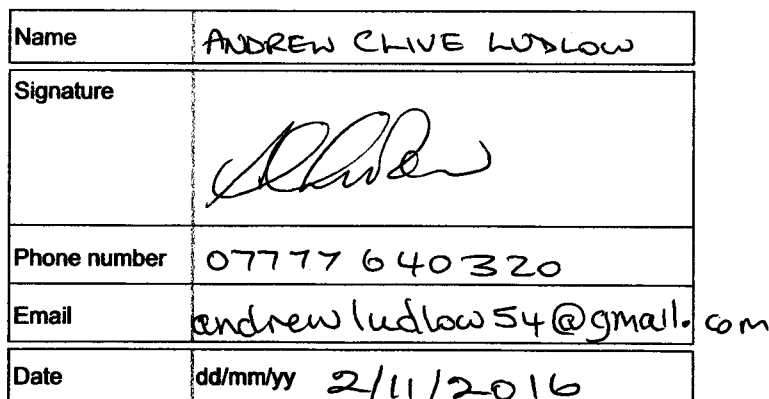 Name ANDREW CLIVE LUDLOW
Signature
Phone number 07777 640320
Email andrewludlow54@gmail.com
Date dd/mm/yy 2/11/2016